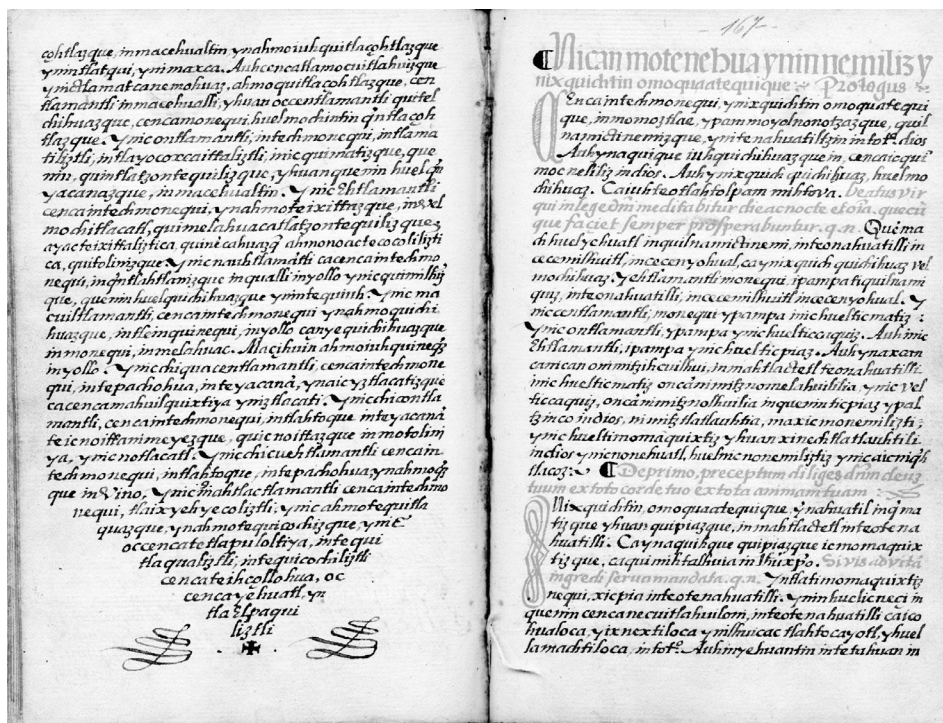 cohtlazque, inmacehualtin, ynahmoiuhquitlaçohtlazque
ynintlatqui, ynimaxca. Auhcencatlamocuitlahuizque
ynictlamatcanemohuaz, ahmoquitlaçohtlazque, cen
tlamantli inmacehualli, yhuan occentlamantli quitel
chihuazque, cencamonequi, huelmochintin qntlaçoh
tlazque. Ynicontlamantli, intechmonequi, intlama
tiliztli, intlayocoxcaittaliztli, inicquimatizque, que
nin, quintlatzontequilizque, yhuanquenin huelqui
yacanazque, inmacehualtin. Yniceitlamantli
cencaintechmonequi, ynahmoteixittazque,
mochitlacatl, quimelahuacatlatzontequilizque
ayacteixittaliztica, ahmonoactecocoliliztli
ca, quitolinizque. Ynicnauhtlamantli cacencaintechmo
nequi, inqualli inyollo ynicquimilhuiz
que, queninhuelquichihuazque ynintequiuh. Ynicma
cuiltlamantli, cencaintechmonequi ynahmoquichi
huazque, intleinquinequi, inyollo canyequichihuazque
inmonequi, inmelahuac. Maçihuin ahmoiuhquineqz
inyollo. Ynicchiquacentlamantli, cencaintechmone
qui, intepachohua, inteyacana, ynaicyztlacatizque
cacencamahuilquixtiya yniztlacati. Ynicchicontla
mantli, cencaintechmonequi, intlahtoque inteyacana
teicnoittanimeyezque, quicnoittazque inmotolini
ya, ynicnotlacatl. Ynicchicuehtlamantli cencain
techmonequi, intlahtoque, intepachohua, ynahmoqz
que in vino. Ynicmahtlactlamantli cencaintechmo
nequi, tlaixyehyecoliztli, ynicahmotequitla
quazque, ynahmotequicochizque, ynic
occencatetlapuloltiya, intequi
tlaqualiztli, intequicochiliztli
cencateihcollohua, oc
cencayehuatl, yn
tlaelpaqui
liztli
167
Nican motenehua ynin nemiliz y
nixquichtin omoquaatequique. Prologus
Cencaintechmonequi, ynixquichtin omoquatequi
que, inmomoztlae, ypammoyolnonotzazque, quil
namictinemizque, ynitenahuatiltzin intoto dios
Auhynaquique iuhquichihuazquein, cencaicqui
mocneliliz indios. Auhynixquich quichihuaz, huelmo
chihuaz. Caiuhteotlahtolpam mihtova. Beatus vir
qui in lege dni meditabitur die ac nocte et oia. quecu
que faciet semper prosperabuntur. q.n. Quema
ca huelyehuatl inquilnamictinemi, inteonahuatilli in
cecemilhuitl, incecenyohual, caynixquich quichihuaz vel
mochihuaz. Yeitlamantli monequi, ipampatiquilnami
quiz, inteonahuatilli, incecemilhuitl incecenyohual. Y
niccentlamantli, monequi ypampa inichuelticmatiz
Ynicontlamantli, ypampa ynichuelticcaquiz. Auhinic
Eitlamantli, ipampa ynichuelticpiaz. Auhynaxcan
canican omitzihcvilhui, inmahtlactetl teonahuatilli.
inichuelticmatiz oncanimitznomelahuililia, ynic vel
ticcaquiz, oncanimitznolhuilia inquenin ticpiaz ypal
tzinco indios, nimitztlatlauhtia, maxicmonemilizti;
ynichueltimomaquixtiz yhuan xinechtlatlauhtili
indios ynicnonehuatl, huelnicnonemiliztiz ynicaicniqlh
tlacoz. Deprimo, preceptum diliges dnm deuz
tuum ex toto corde tuo ex tota anima tuam
Nixquichtin, omoquaatequique, ynahuatil inqma
tizque yhuan quipiazque, inmahtlactetl inteotena
huatilli. Caynaquihque quipiazque icmomaquix
tizque, caquimihtalhuia in Jhuxpo. Si vis ad vita
ingredi serva mandata. q.n. Yntlatimomaquixtiz
nequi, xicpia inteotenahuatilli. Yninhuelicneci in
quenin cencanecuitlahuilom, inteotenahuatilli caico
hualoca, yixnextiloca ynilhuicac tlahtocayotl, yhuel
lamachtiloca, intoto. Auhinyehuantin intetahuan in